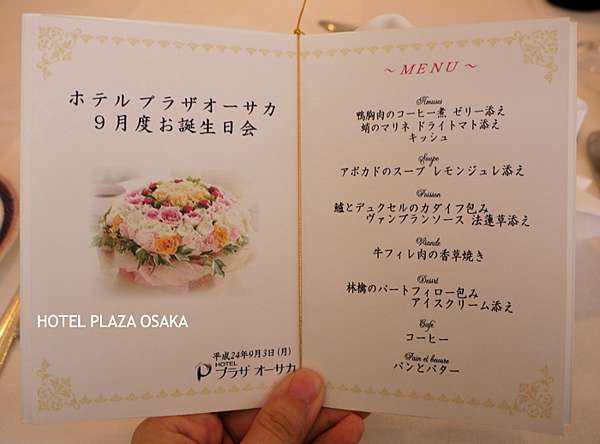 ホテルプラザオーサカ
９月度お誕生日会
HOTEL PLAZA OSAKA
平成24年9月3日(月)
HOTEL
プラザ オーサカ
～MENU～
Amuses
鴨胸肉のコーヒー煮 ゼリー添え
蛸のマリネ ドライトマト添え
キッシュ
Soupe
アボカドのスープ レモンジュレ添え
Poisson
鱸とデュクセルのカダイフ包み
ヴァンブランソース 法蓮草添え
Viande
牛フィレ肉の香草焼き
Desert
林檎のパートフィロー包み
アイスクリーム添え
Cafe
コーヒー
Pain et beurre
パンとバター